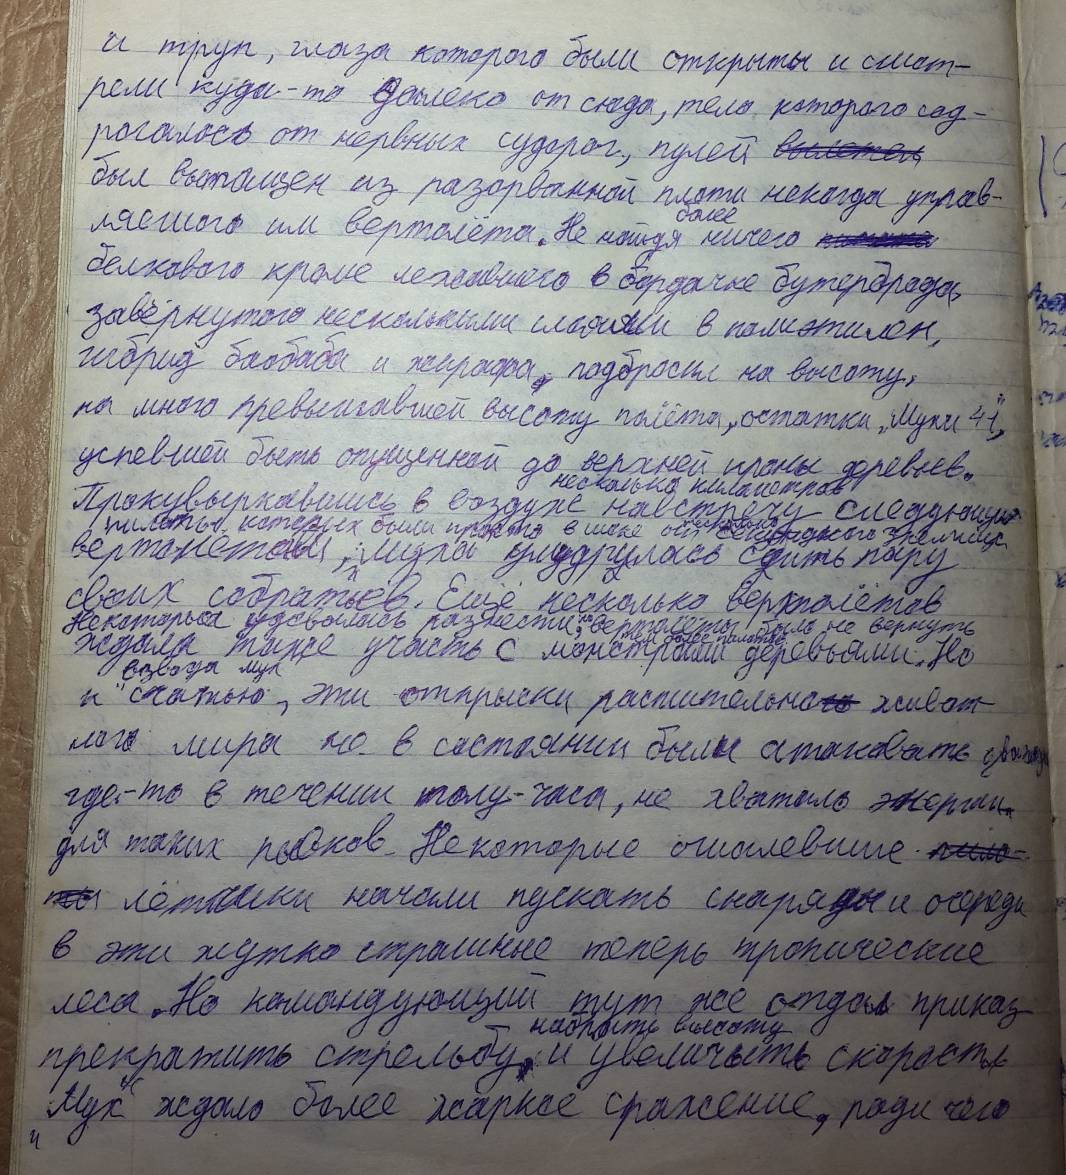 и труп, глаза которого были открыты и смот-
рели куда-то далеко от сюда, тело которого сод-
рогалось от нервных судорог, пулей вылетел
был вытащен из разорванной плоти некогда управ-
ляемого им вертолёта. Не найдя ничего
более
белкового кроме лежавшего в бардачке бутерброда,
завёрнутого несколькими слоями в полиэтилен,
гибрид баобаба и жирафа, подбросил на высоту,
на много превышавшей высоту полёта, остатки „Мухи 41",
успевшей быть опущенной до верхней кроны деревьев.
несколько километров
Прокувыркавшись в воздухе навстречу следующим
пилоты которых были просто в шоке от секундного зрелища
вертолётам, муха умудрилась сбить пару
своих собратьев. Ещё несколько вертолётов
Некоторых удавалось разнести, но вертолёты было не вернуть
тем более пилотов
ждала такая участь с монстрами деревьями. Но
взвода мух
к счастью, эти отпрыски растительно живот-
ного мира не в состоянии были атаковать дважды
где-то в течении полу-часа, не хватало энергии
для таких рывков. Некоторые ошалевшие пило-
ты лётчики начали пускать снаряды и очереди
в эти жутко страшные теперь тропические
леса. Но командующий тут же отдал приказ
набрать высоту
прекратить стрельбу, и увеличить скорость
„Мух" ждало более жаркое сражение, ради чего
и